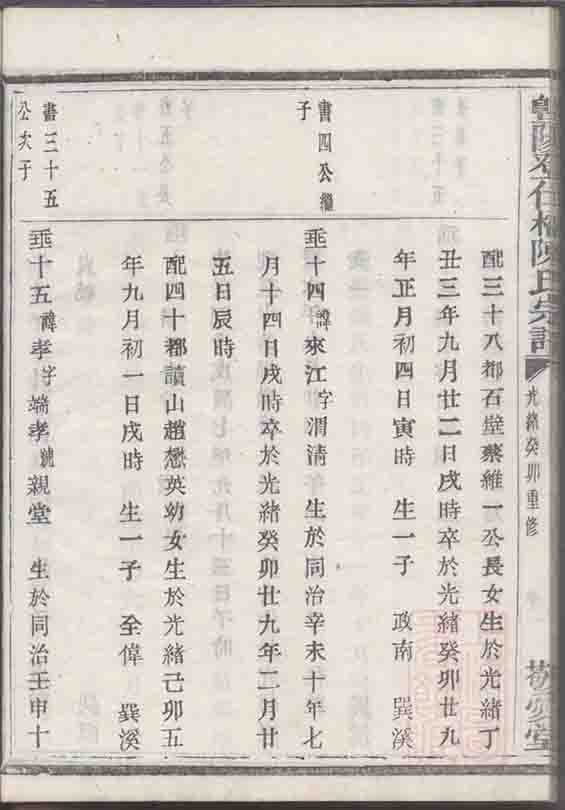 陳氏宗譜
光緒癸卯重修
配三十八都石壁蔡維一公長女生於光緒丁
丑三年九月廿二日戌時卒於光緒癸卯廿九
年正月初四日寅時 生一子 政南 巽溪
書四公繼
子
垂十四諱來江字渭清 生於同治辛未十年七
月十四日戌時卒於光緒癸卯廿九年二月廿
五日辰時
配四十都讀山趙懋英幼女生於光緒己卯五
年九月初一日戌時 生一子 全偉 巽溪
書三十五
公次子
垂十五諱孝字端孝號親堂 生於同治壬申十